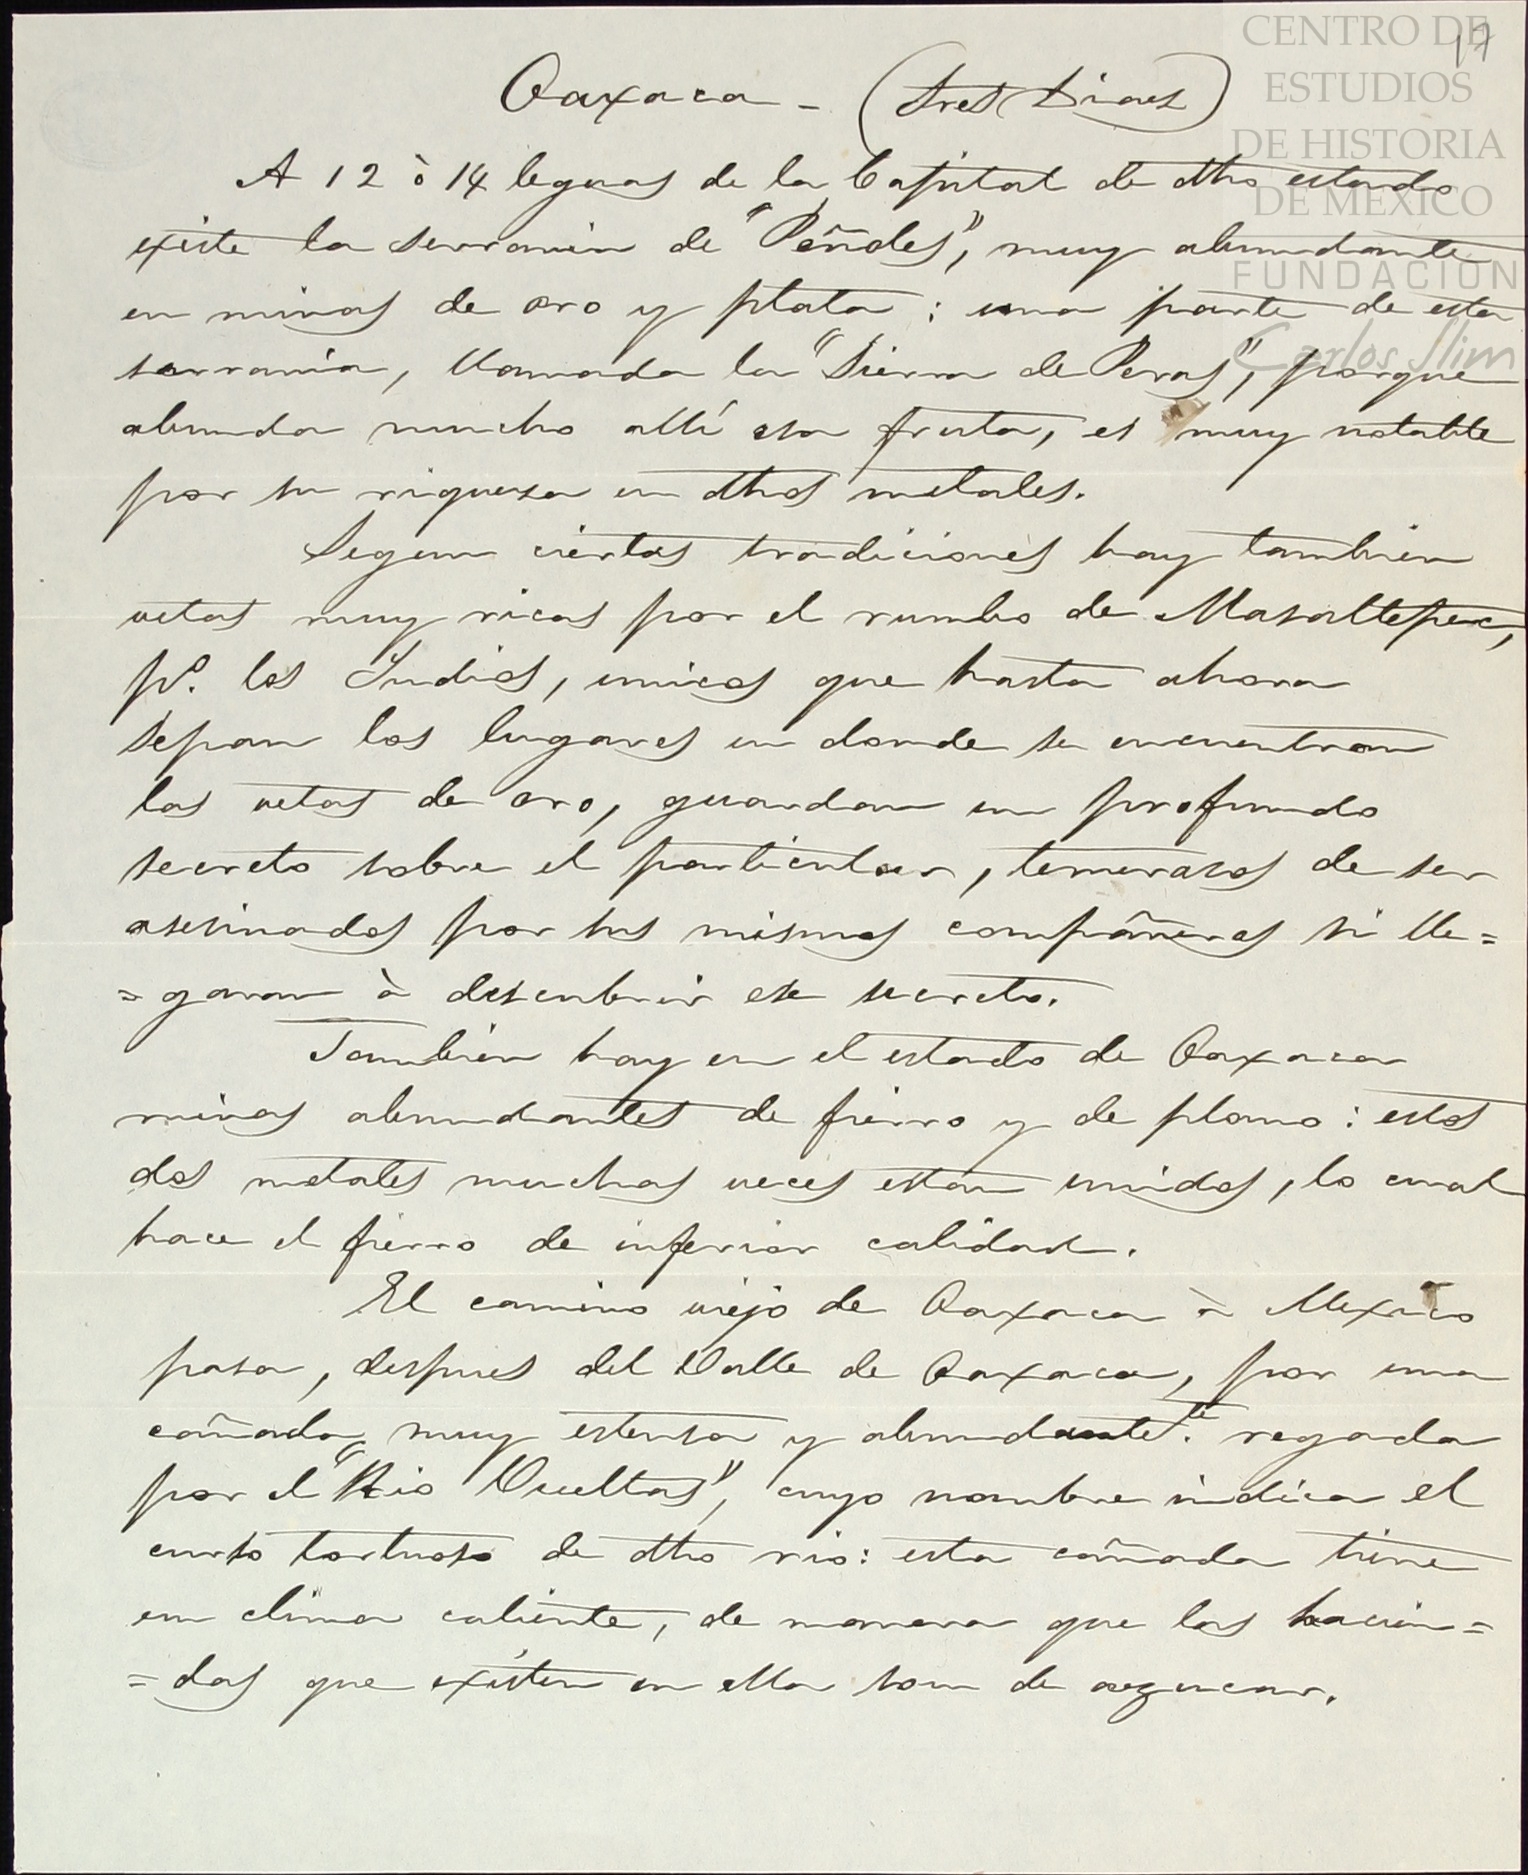 CENTRO DE
ESTUDIOS
DE HISTORIA
DE MEXICO
FUNDACION
Carlos Slim
17
Oaxaca - (Tres Dias)
A 12 ò 14 leguas de la Capital de dho estado
existe la serrania de "Peñoles", muy abundante
en minas de oro y plata: una parte de esta
serrania, llamada la "Sierra de Peras", porque
abunda mucho allí esa fruta, es muy notable
por su riqueza en dhos metales.
Segun ciertas tradiciones hay tambien
vetas muy ricas por el rumbo de Mazaltepec,
pº. los Indios, unicos que hasta ahora
sepan los lugares en donde se encuentran
las vetas de oro, guardan un profundo
secreto sobre el particular, temerosos de ser
asesinados por sus mismos compañeros si lle=
=garan à descubrir ese secreto.
Tambien hay en el estado de Oaxaca
minas abundantes de fierro y de plomo: estos
dos metales muchas veces estan unidos, lo cual
hace el fierro de inferior calidad.
El camino viejo de Oaxaca à Mexico
pasa, despues del Valle de Oaxaca, por una
cañada muy estensa y abundante.te regada
por el "Rio Vueltas", cuyo nombre indica el
curso tortuoso de dho rio: esta cañada tiene
un clima caliente, de manera que las hacien=
=das que existen en ella son de azucar.